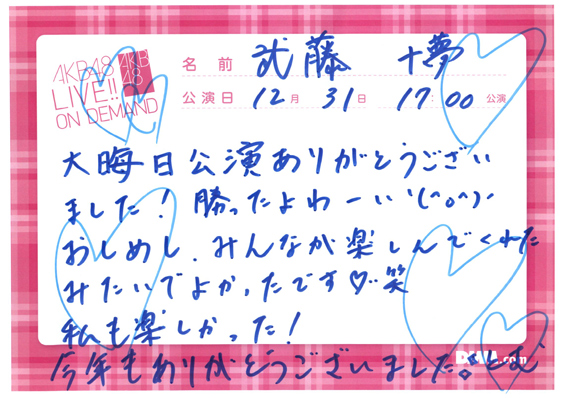 AKB48
LIVE!!
ON DEMAND
AKB
48
名前 武藤 十夢
公演日 12月 31日 17:00 公演
大晦日公演ありがとうござい
ました! 勝ったよわーい\(^o^)/
おしめし、みんなが楽しんでくれた
みたいでよかったです♡笑
私も楽しかった!
今年もありがとうございました。とむ
DMM.com